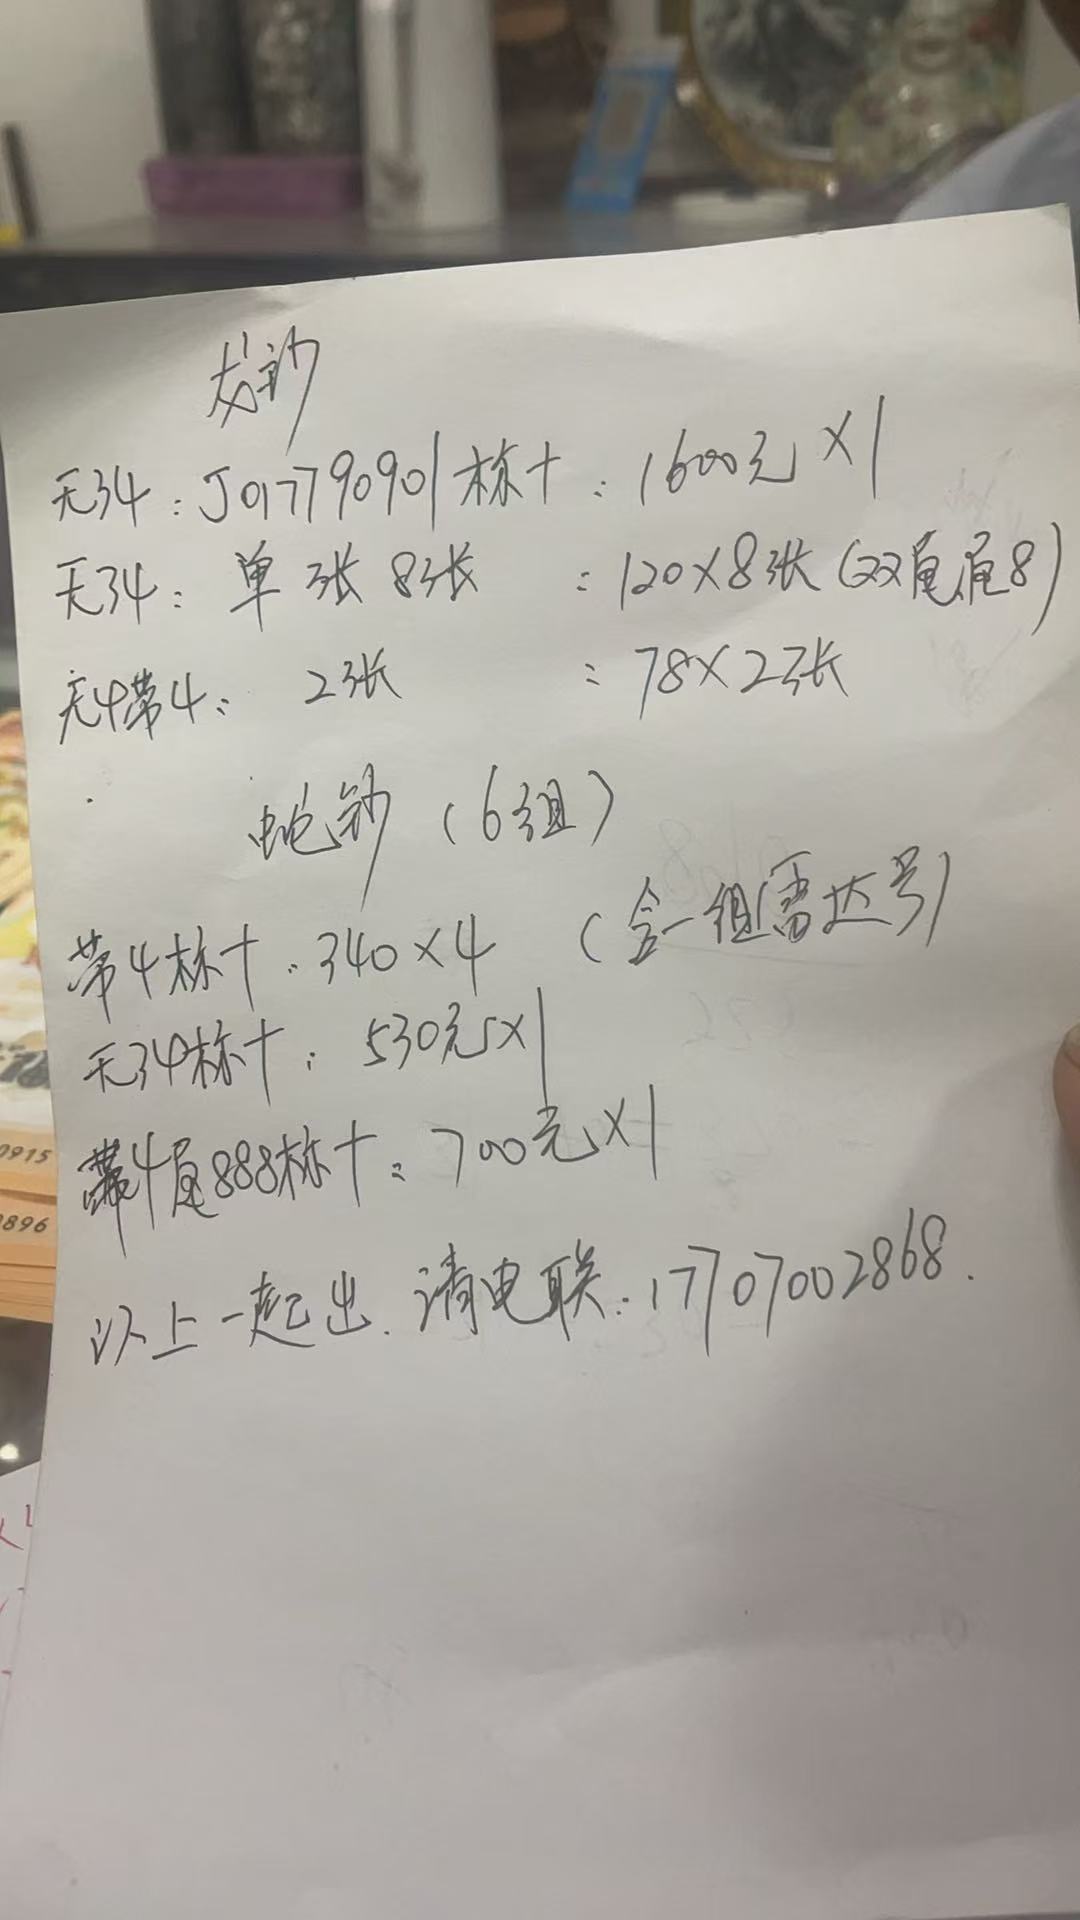 龙钞
无34：J017790901标十：1600元×1
无34：单张8张：120×8张（双尾尾8）
无4带4：2张：78×2张
蛇钞（6组）
带4标十：340×4（含一组雷达号）
无34标十：530元×1
带4尾888标十：700元×1
以上一起出.请电联：17707002868.
0915
0896